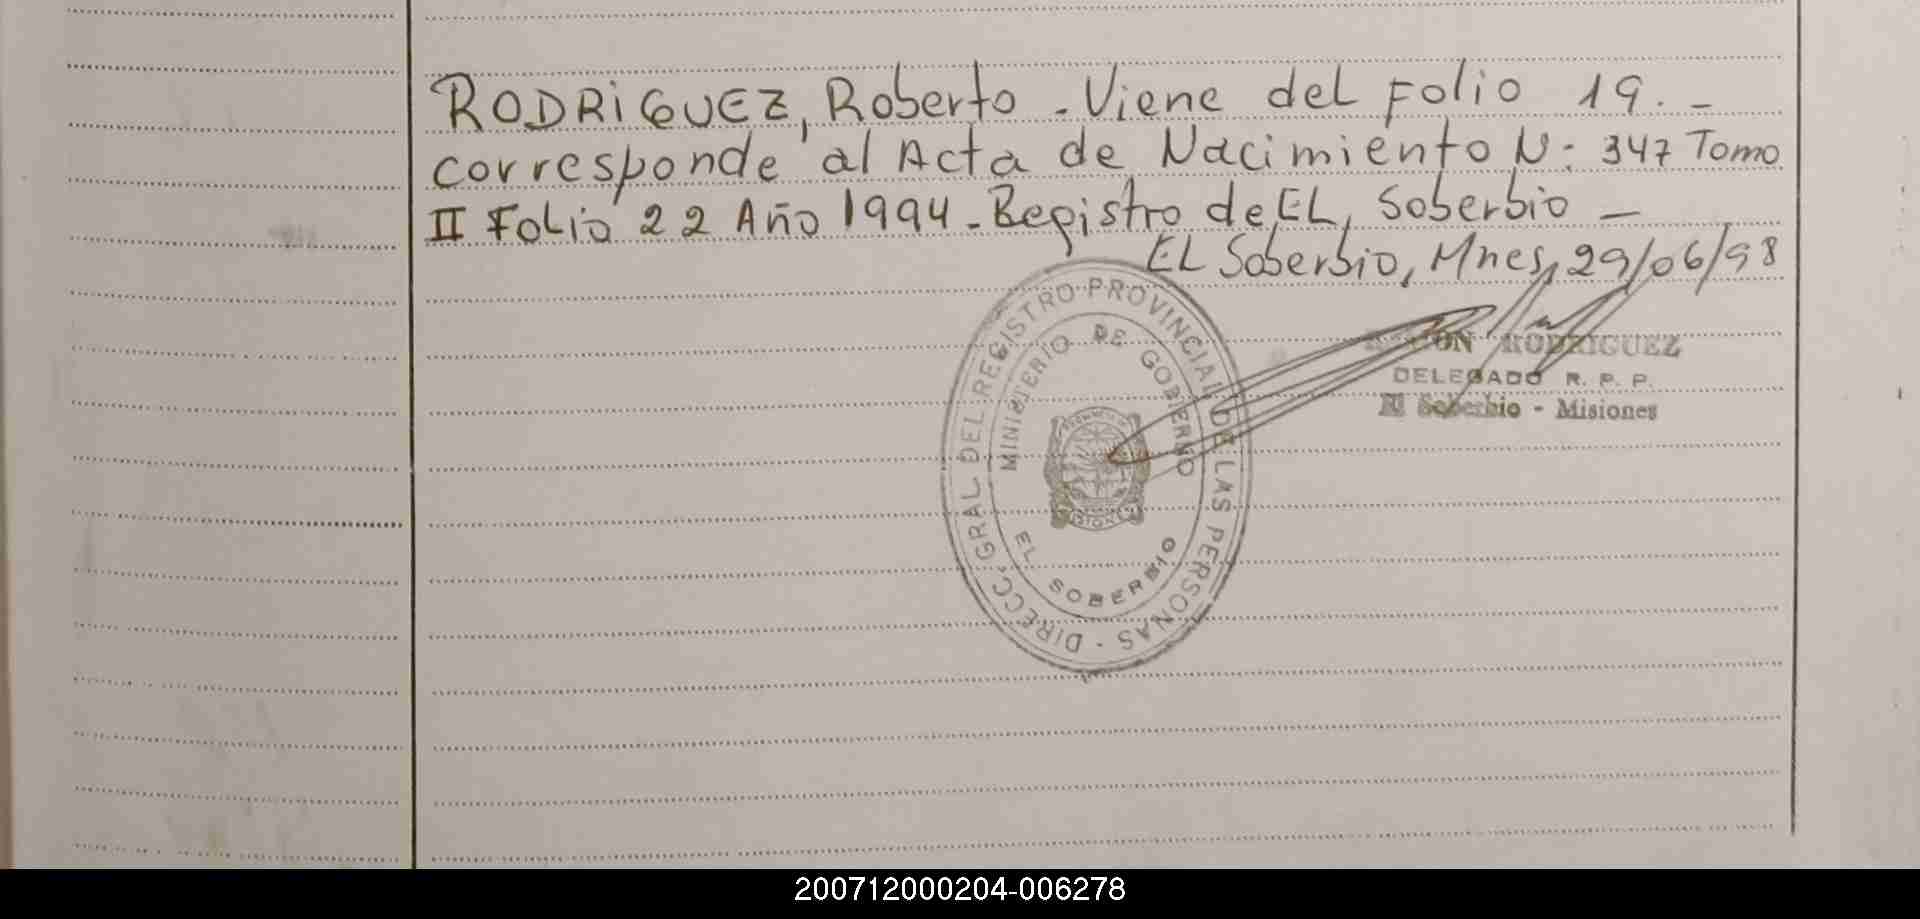 RODRIGUEZ, Roberto - Viene del Folio 19. -
corresponde al Acta de Nacimiento N: 347 Tomo
II Folio 22 Año 1994 - Registro de EL Soberbio -
EL Soberbio, Mnes, 29/06/98
DIRECC. GRAL DEL REGISTRO PROVINCIAL DE LAS PERSONAS -
MINISTERIO DE GOBIERNO
EL SOBERBIO
RODRIGUEZ
DELEGADO R. P. P.
El Soberbio - Misiones
200712000204-006278